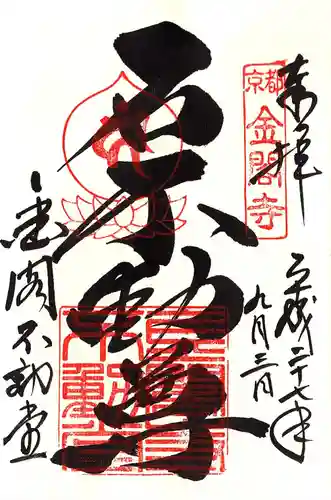 奉拝
京都
金閣寺
平成二十七年
九月三日
石不動尊
金閣不動堂